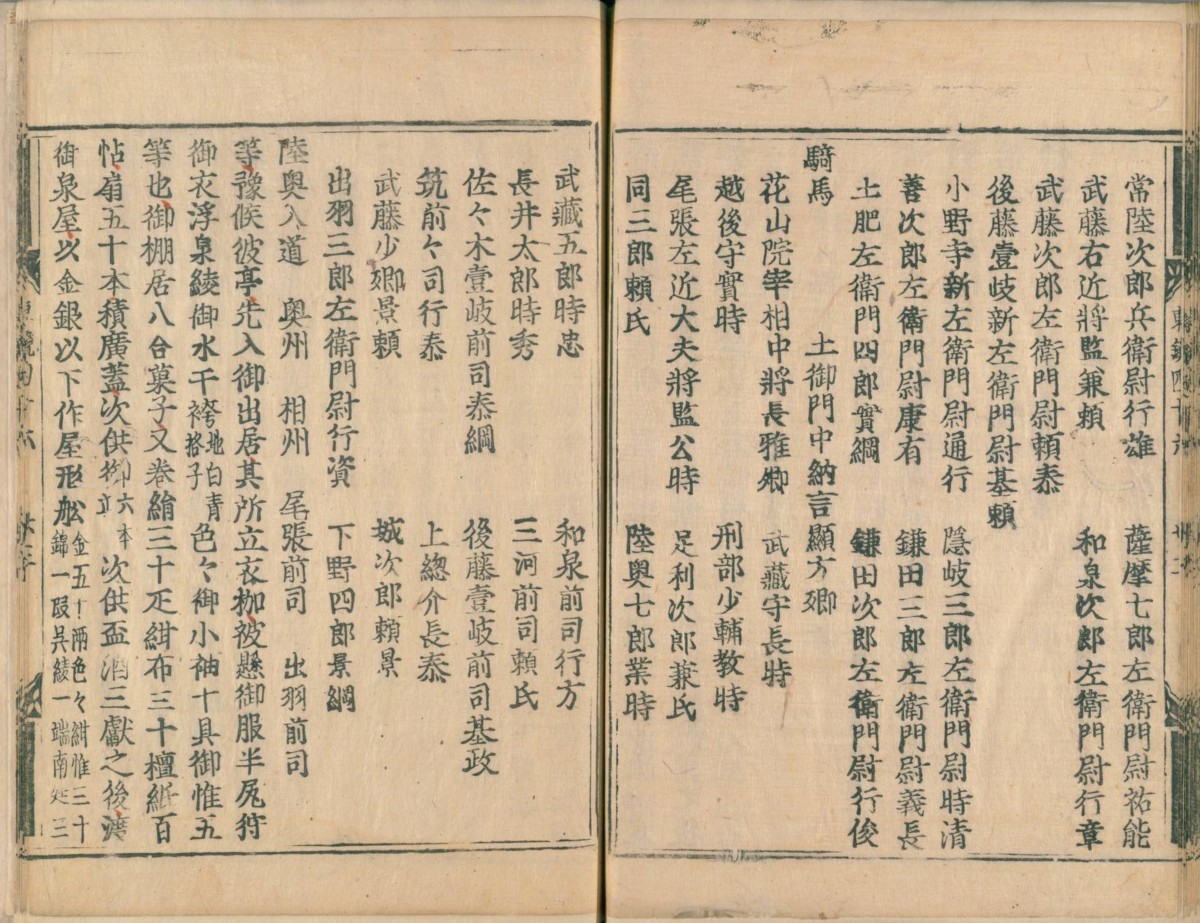 常陸次郎兵衛尉行雄　薩摩七郎左衛門尉祐能
武藤右近將監兼頼　和泉次郎左衛門尉行章
武藤次郎左衛門尉頼泰
後藤壹岐新左衛門尉基頼
小野寺新左衛門尉通行　隱岐三郎左衛門尉時清
善次郎左衛門尉康有　鎌田三郎左衛門尉義長
土肥左衛門四郎實綱　鎌田次郎左衛門尉行俊
騎馬　土御門中納言顯方卿
花山院宰相中將長雅卿　武藏守長時
越後守實時　刑部少輔教時
尾張左近大夫將監公時　足利次郎兼氏
同三郎頼氏　陸奥七郎業時
武藏五郎時忠　和泉前司行方
長井太郎時秀　三河前司頼氏
佐々木壹岐前司泰綱　後藤壹岐前司基政
筑前々司行泰　上總介長泰
武藤少卿景頼　城次郎頼景
出羽三郎左衛門尉行資　下野四郎景綱
陸奥入道　奥州　相州　尾張前司　出羽前司
等豫候彼亭先入御出居其所立衣枷被懸御服半尻狩
御衣浮泉綾御水干袴地白青格子色々御小袖十具御惟五
等也御棚居八合菓子又卷絹三十疋紺布三十檀紙百
帖扇五十本積廣蓋次供御六本立次供盃酒三獻之後渡
御泉屋以金銀以下作屋形舩金五十兩色々紺惟三十
錦一段呉綾一端南廷三